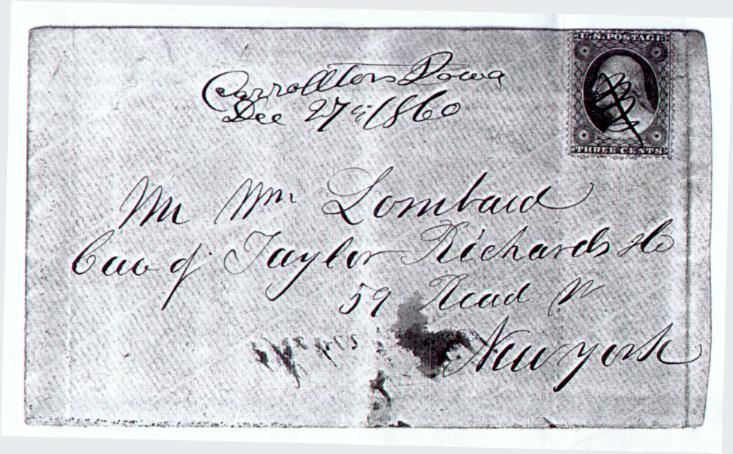 U.S. POSTAGE
Carrollton Iowa
Dec 27 1860
THREE CENTS
Mr Wm Lombard
Care of Taylor Richards & Co
59 Read St
New York